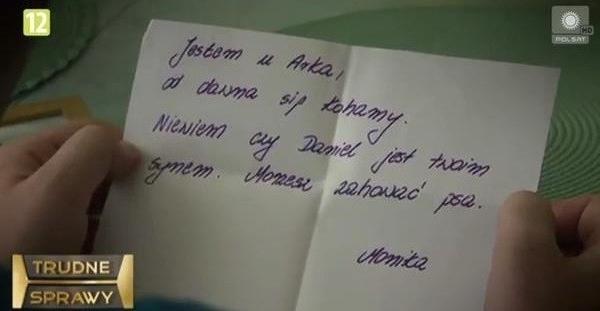 12
POLSAT HD
Jestem u Arka,
od dawna się kohamy.
Niewiem czy Daniel jest twoim
synem. Możesz zahować psa.
Monika
TRUDNE
SPRAWY